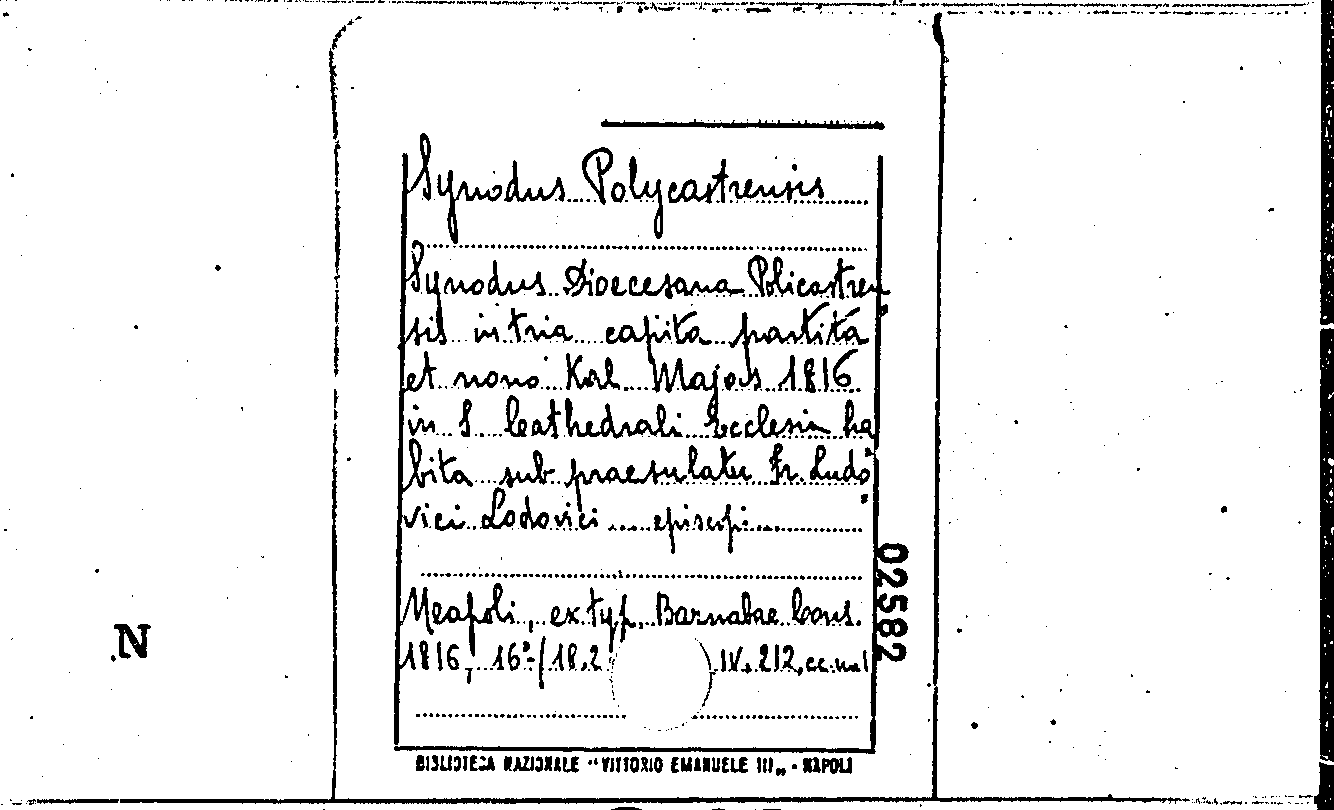 Synodus Polycastrensis
Synodus Dioecesana Policastren
sis in tria capita partita
et nono Kal Majas 1816
in S Cathedrali Ecclesia ha
bita sub praesulatu Fr. Ludo
vici Lodovici .... episcopi
Neapoli, ex typ. Barnabae Cons.
1816, 16°-(18,2 IV. 212, cc.
02582
N
BIBLIOTECA NAZIONALE "VITTORIO EMANUELE III" - NAPOLI